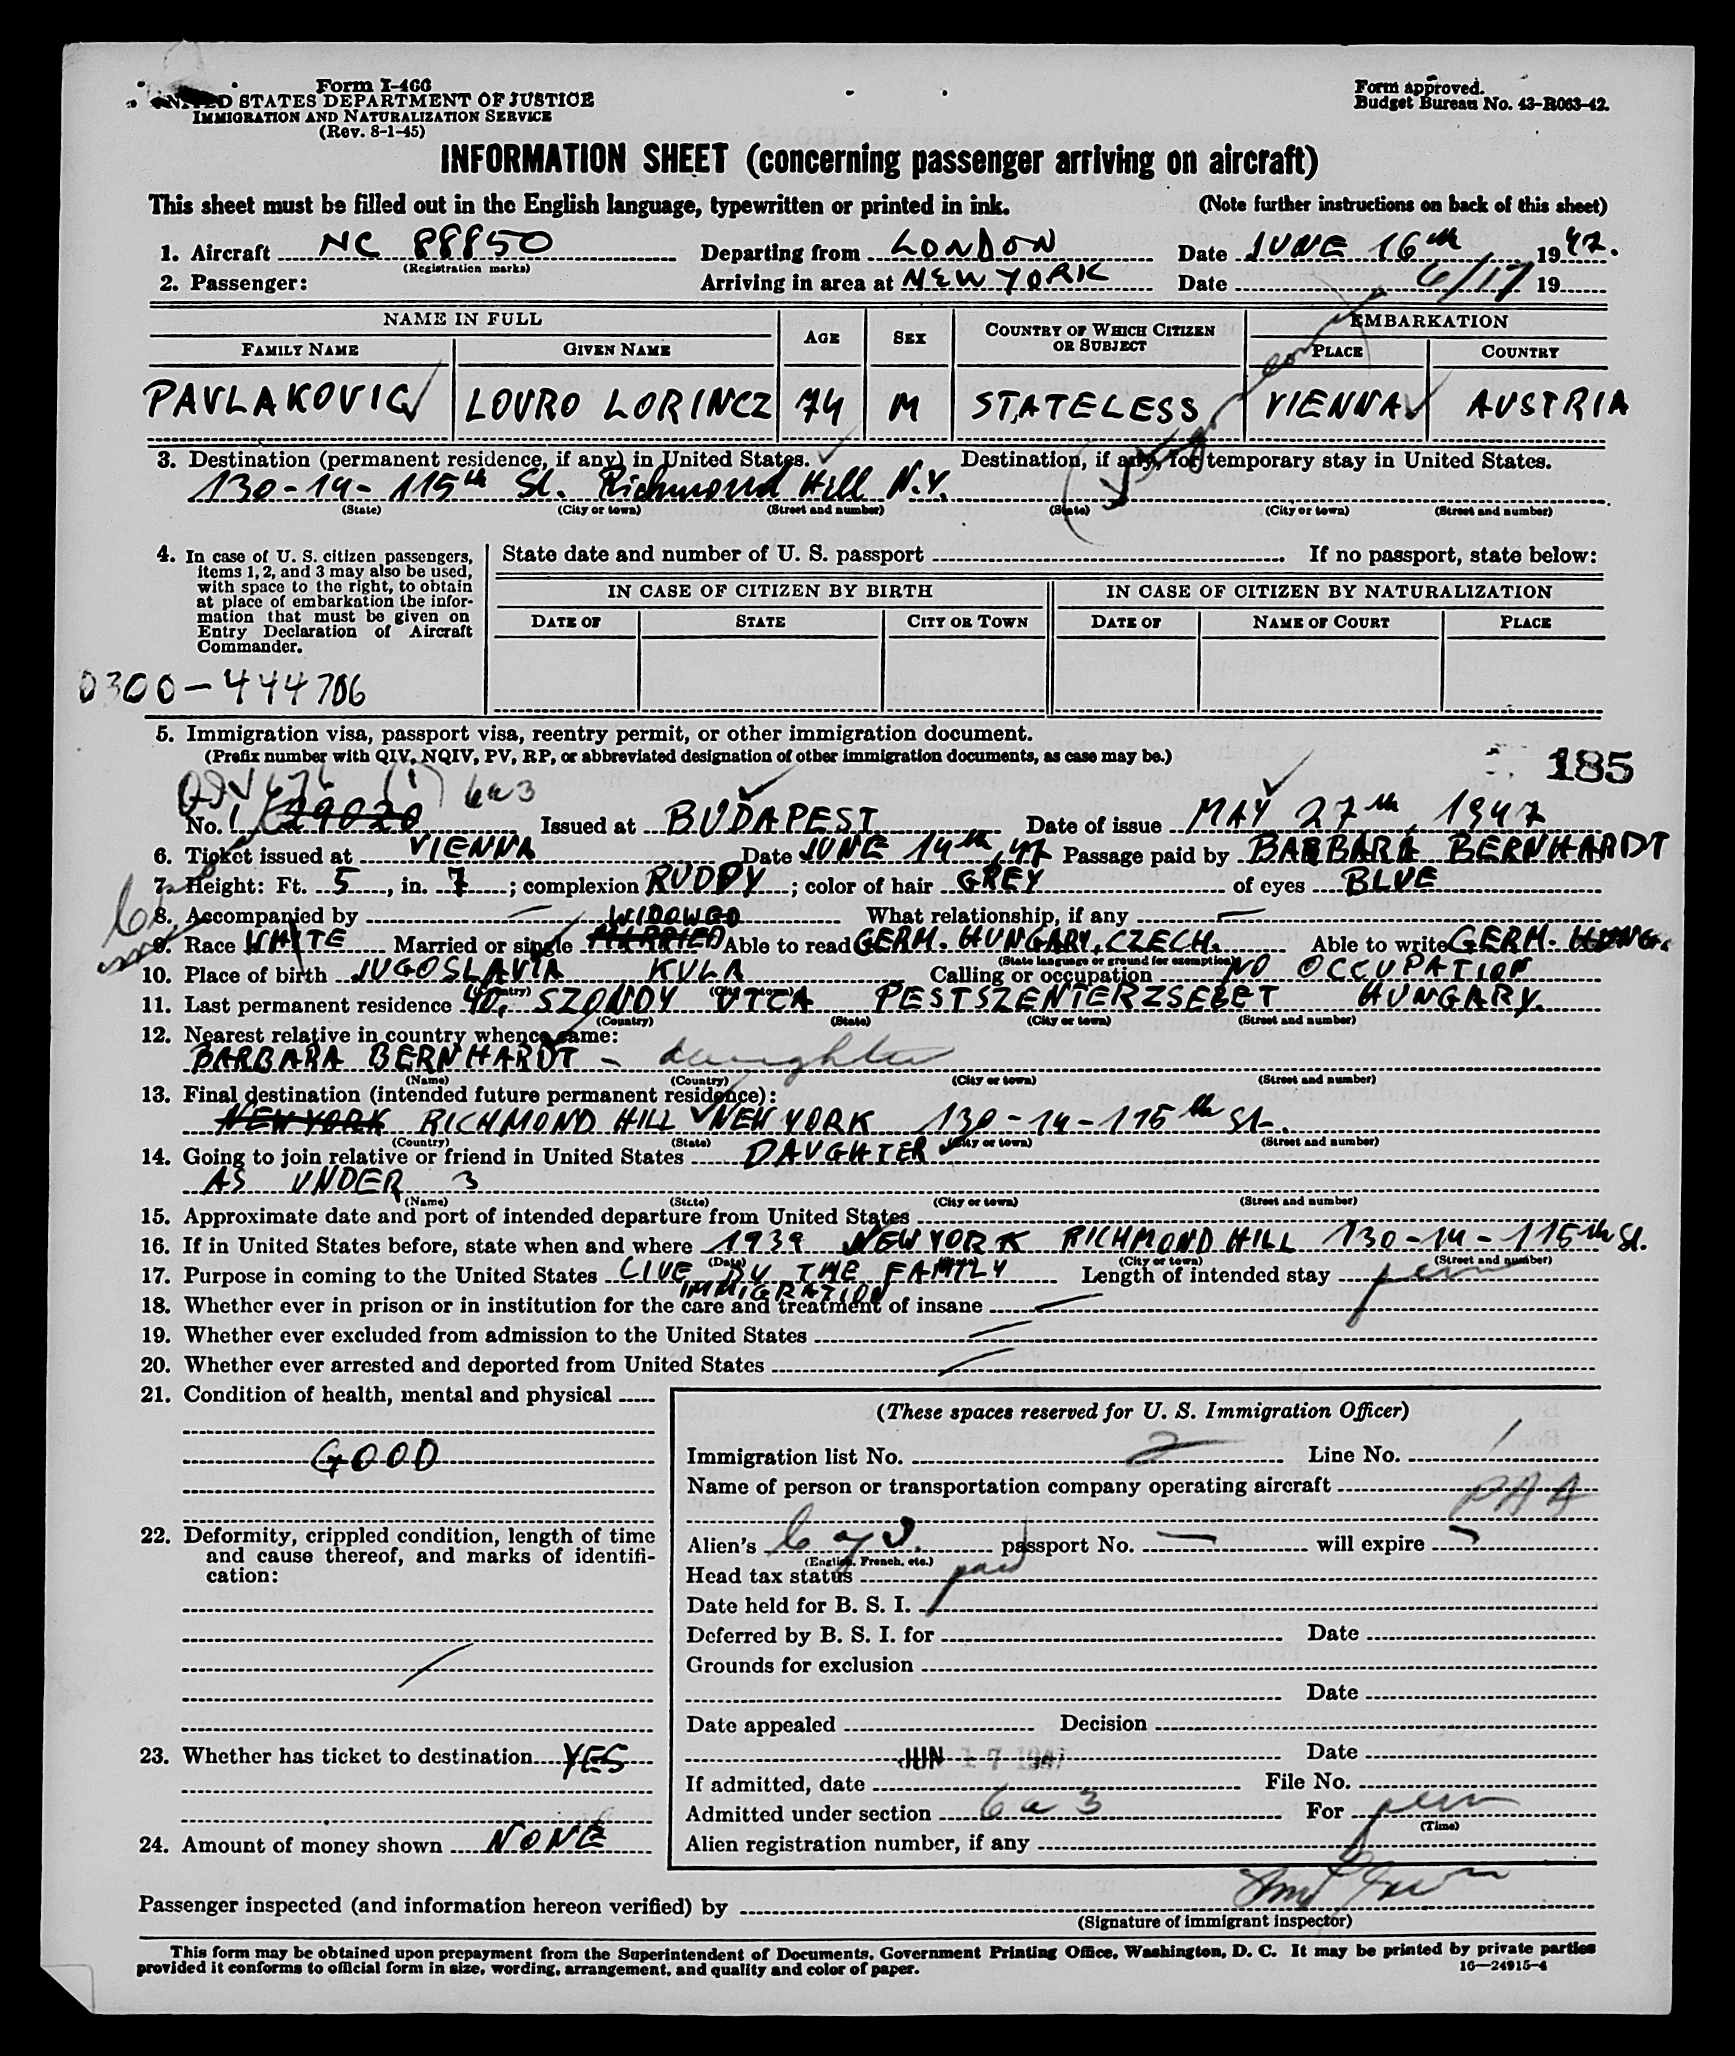 Form I-466
UNITED STATES DEPARTMENT OF JUSTICE
IMMIGRATION AND NATURALIZATION SERVICE
(Rev. 8-1-45)
Form approved.
Budget Bureau No. 43-R063-42.
INFORMATION SHEET (concerning passenger arriving on aircraft)
This sheet must be filled out in the English language, typewritten or printed in ink. (Note further instructions on back of this sheet)
1. Aircraft NC 88850 Departing from LONDON Date JUNE 16th 1947.
(Registration marks)
2. Passenger: Arriving in area at NEW YORK Date 6/17 19
NAME IN FULL AGE SEX COUNTRY OF WHICH CITIZEN OR SUBJECT EMBARKATION
FAMILY NAME GIVEN NAME PLACE COUNTRY
PAVLAKOVIC LOURO LORINCZ 74 M STATELESS VIENNA AUSTRIA
3. Destination (permanent residence, if any) in United States. Destination, if any, for temporary stay in United States.
130-14-115th St. Richmond Hill N.Y.
(State) (City or town) (Street and number) (State) (City or town) (Street and number)
4. In case of U. S. citizen passengers, items 1, 2, and 3 may also be used, with space to the right, to obtain at place of embarkation the information that must be given on Entry Declaration of Aircraft Commander.
State date and number of U. S. passport If no passport, state below:
IN CASE OF CITIZEN BY BIRTH IN CASE OF CITIZEN BY NATURALIZATION
DATE OF STATE CITY OR TOWN DATE OF NAME OF COURT PLACE
0300-444706
5. Immigration visa, passport visa, reentry permit, or other immigration document.
(Prefix number with QIV, NQIV, PV, RP, or abbreviated designation of other immigration documents, as case may be.)
185
QIV 676 (1) 6a3
No. 1/29020 Issued at BUDAPEST Date of issue MAY 27th, 1947
6. Ticket issued at VIENNA Date JUNE 14th, 47 Passage paid by BARBARA BERNHARDT
7. Height: Ft. 5, in. 7; complexion RUDDY; color of hair GREY of eyes BLUE
8. Accompanied by — What relationship, if any —
WIDOWED
9. Race WHITE Married or single MARRIED Able to read GERM. HUNGARY, CZECH. Able to write GERM. HUNG.
(State language or ground for exemption)
10. Place of birth JUGOSLAVIA KULA Calling or occupation NO OCCUPATION
(Country) (City or town)
11. Last permanent residence 40, SZONDY UTCA PESTSZENTERZSEBET HUNGARY.
(Country) (State) (City or town) (Street and number)
12. Nearest relative in country whence came:
BARBARA BERNHARDT - daughter
(Name) (Country) (City or town) (Street and number)
13. Final destination (intended future permanent residence):
NEW YORK RICHMOND HILL NEW YORK 130-14-115th St.
(Country) (State) (City or town) (Street and number)
14. Going to join relative or friend in United States DAUGHTER
AS UNDER 3
(Name) (State) (City or town) (Street and number)
15. Approximate date and port of intended departure from United States
16. If in United States before, state when and where 1939 NEW YORK RICHMOND HILL 130-14-115th St.
(Date) (City or town) (Street and number)
17. Purpose in coming to the United States LIVE BY THE FAMILY Length of intended stay perm
IMMIGRATION
18. Whether ever in prison or in institution for the care and treatment of insane —
19. Whether ever excluded from admission to the United States —
20. Whether ever arrested and deported from United States —
21. Condition of health, mental and physical
GOOD
22. Deformity, crippled condition, length of time and cause thereof, and marks of identification:
23. Whether has ticket to destination YES
24. Amount of money shown NONE
(These spaces reserved for U. S. Immigration Officer)
Immigration list No. 2 Line No. 1
Name of person or transportation company operating aircraft PAA
Alien's passport No. — will expire —
(English, French, etc.)
Head tax status paid
Date held for B. S. I.
Deferred by B. S. I. for Date
Grounds for exclusion
Date
Date appealed Decision
Date
JUN 17 1947
If admitted, date File No.
Admitted under section 6a3 For perm
(Time)
Alien registration number, if any
Passenger inspected (and information hereon verified) by
(Signature of immigrant inspector)
This form may be obtained upon prepayment from the Superintendent of Documents, Government Printing Office, Washington, D. C. It may be printed by private parties
provided it conforms to official form in size, wording, arrangement, and quality and color of paper. 16—24915-4